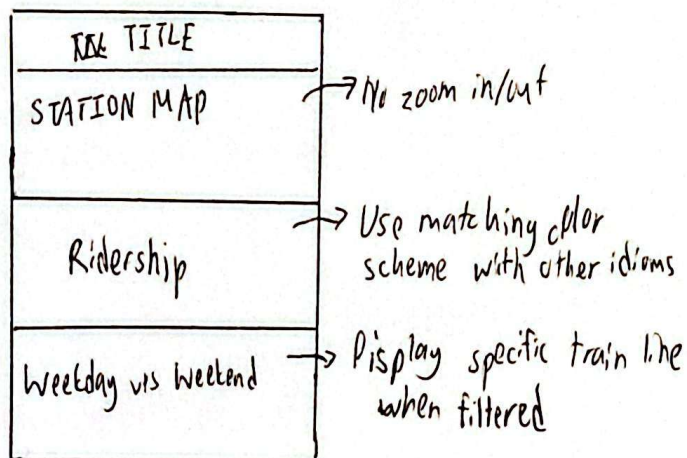 TITLE
STATION MAP
No zoom in/out
Ridership
Use matching color
scheme with other idioms
Weekday vs Weekend
Display specific train line
when filtered